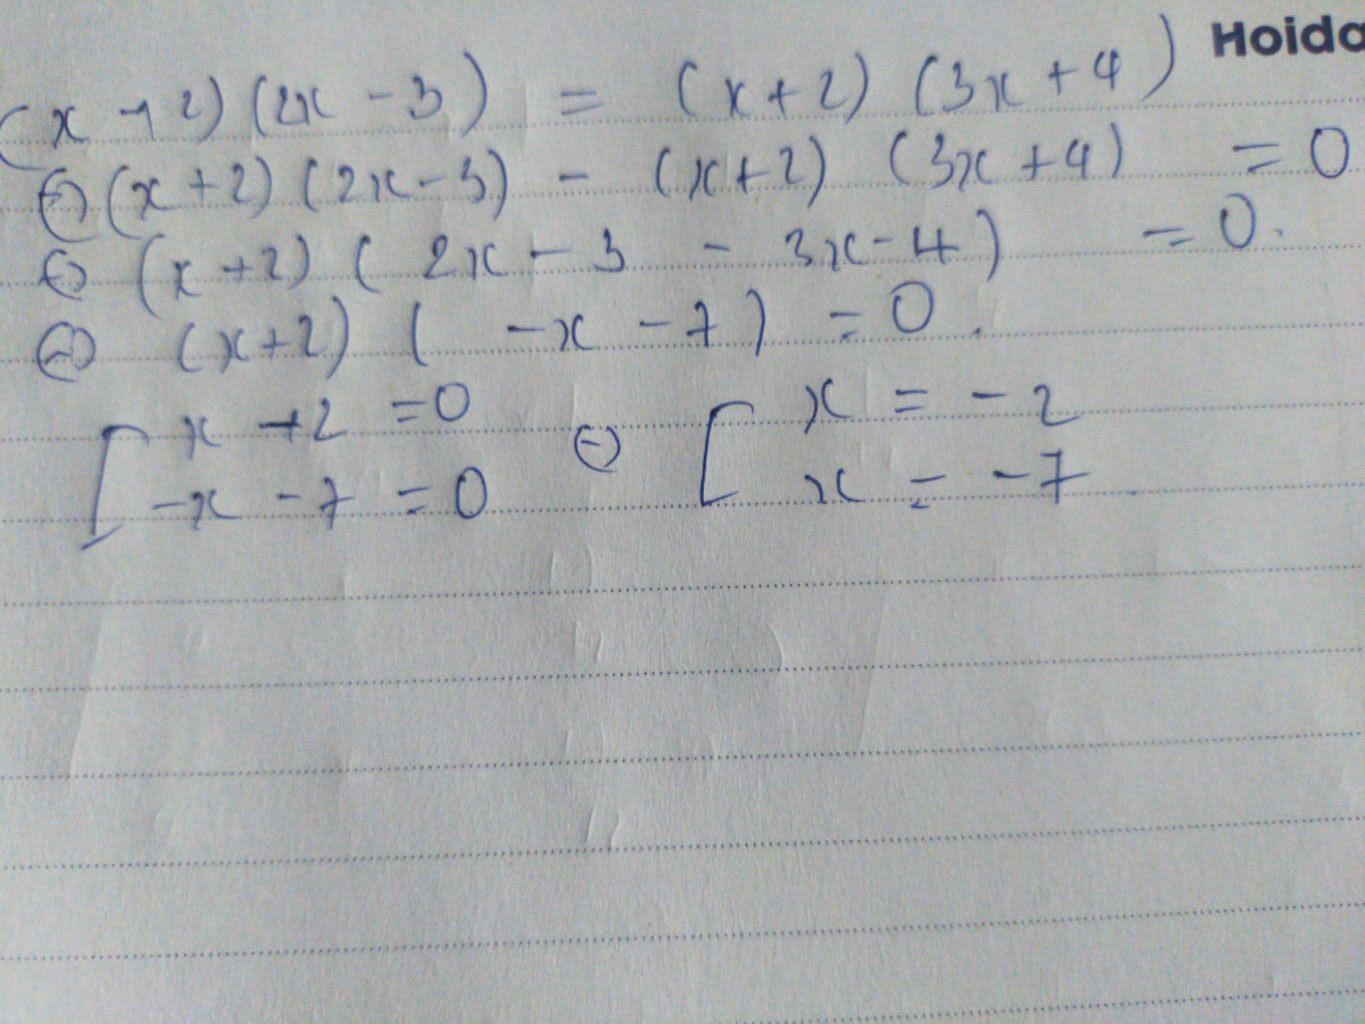 Hoida
(x + 2) (2x - 3) = (x + 2) (3x + 4)
⇔ (x + 2) (2x - 3) - (x + 2) (3x + 4) = 0
⇔ (x + 2) ( 2x - 3 - 3x - 4 ) = 0.
⇔ (x + 2) ( -x - 7 ) = 0.
[ x + 2 = 0 ⇔ [ x = -2
-x - 7 = 0 x = -7